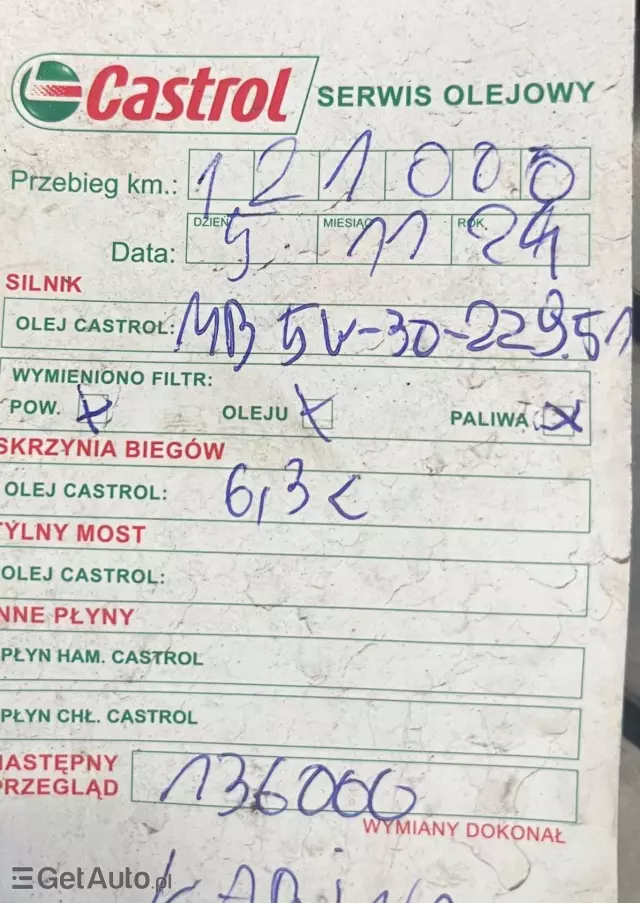 Castrol SERWIS OLEJOWY
Przebieg km.: 121000
DZIEŃ MIESIĄC ROK
Data: 5 11 24
SILNIK
OLEJ CASTROL: MB 5W-30-229.51
WYMIENIONO FILTR:
POW. x OLEJU x PALIWA x
SKRZYNIA BIEGÓW
OLEJ CASTROL: 6,3L
TYLNY MOST
OLEJ CASTROL:
NNE PŁYNY
PŁYN HAM. CASTROL
PŁYN CHŁ. CASTROL
NASTĘPNY
PRZEGLĄD 136000
WYMIANY DOKONAŁ
GetAuto.pl